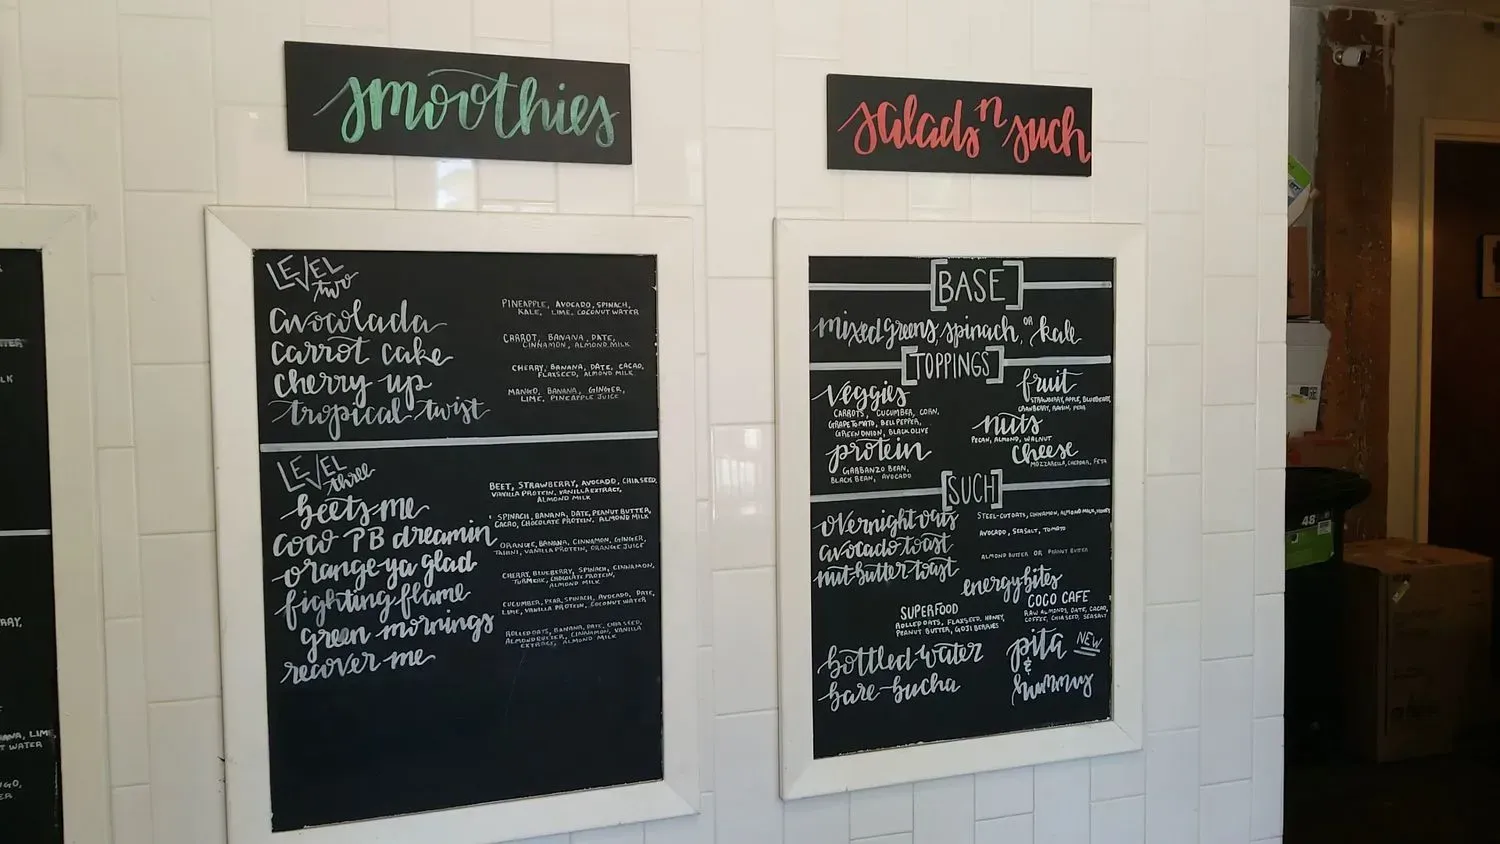 smoothies
LEVEL
two
avocolada
PINEAPPLE, AVOCADO, SPINACH,
KALE, LIME, COCONUT WATER
carrot cake
CARROT, BANANA, DATE,
CINNAMON, ALMOND MILK
cherry up
CHERRY, BANANA, DATE, CACAO,
FLAXSEED, ALMOND MILK
tropical-twist
MANGO, BANANA, GINGER,
LIME, PINEAPPLE JUICE
LEVEL
three
beets me
BEET, STRAWBERRY, AVOCADO, CHIA SEED,
VANILLA PROTEIN, VANILLA EXTRACT,
ALMOND MILK
coco PB dreamin'
SPINACH, BANANA, DATE, PEANUT BUTTER,
CACAO, CHOCOLATE PROTEIN, ALMOND MILK
orange-ya glad
ORANGE, BANANA, CINNAMON, GINGER,
TAHINI, VANILLA PROTEIN, ORANGE JUICE
fighting flame
CHERRY, BLUEBERRY, SPINACH, CINNAMON,
TURMERIC, CHOCOLATE PROTEIN,
ALMOND MILK
green mornings
CUCUMBER, PEAR, SPINACH, AVOCADO, DATE,
LIME, VANILLA PROTEIN, COCONUT WATER
recover me
ROLLED OATS, BANANA, DATE, CHIA SEED,
ALMOND BUTTER, CINNAMON, VANILLA
EXTRACT, ALMOND MILK
salads n such
BASE
mixed greens, spinach, OR kale
TOPPINGS
veggies
CARROTS, CUCUMBER, CORN,
GRAPE TOMATO, BELL PEPPER,
GREEN ONION, BLACK OLIVE
fruit
STRAWBERRY, APPLE, BLUEBERRY,
CRANBERRY, RAISIN, PEAR
nuts
PECAN, ALMOND, WALNUT
protein
GARBANZO BEAN,
BLACK BEAN, AVOCADO
cheese
MOZZARELLA, CHEDDAR, FETA
SUCH
overnight oats
STEEL-CUT OATS, CINNAMON, ALMOND MILK, HONEY
avocado toast
AVOCADO, SEA SALT, TOMATO
nut-butter toast
ALMOND BUTTER OR PEANUT BUTTER
energy bites
SUPERFOOD
ROLLED OATS, FLAXSEED, HONEY,
PEANUT BUTTER, GOJI BERRIES
COCO CAFE
RAW ALMONDS, DATE, CACAO,
COFFEE, CHIA SEED, SEA SALT
bottled water
bare-bucha
pita NEW
&
hummus
WATER
LK
RRY,
ANA, LIME
T WATER
NGO,
ER
48